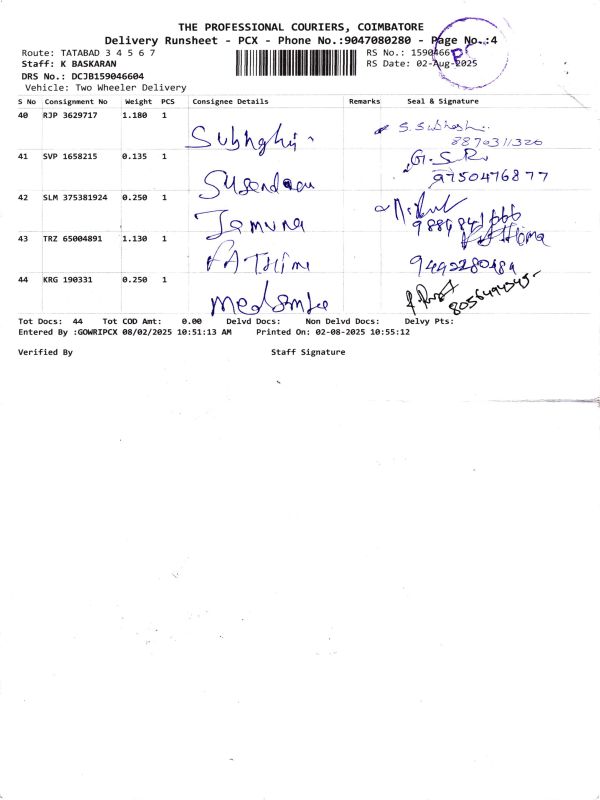 THE PROFESSIONAL COURIERS, COIMBATORE
Delivery Runsheet - PCX - Phone No.:9047080280 - Page No.:4
Route: TATABAD 3 4 5 6 7
RS No.: 1590466
Staff: K BASKARAN
RS Date: 02-Aug-2025
DRS No.: DCJB159046604
Vehicle: Two Wheeler Delivery
P
S No Consignment No Weight PCS Consignee Details Remarks Seal & Signature
40 RJP 3629717 1.180 1
S. Subhashi
8870311320
41 SVP 1658215 0.135 1
G. S R
9750476877
42 SLM 375381924 0.250 1 Jamuna
43 TRZ 65004891 1.130 1 FATHIMA
44 KRG 190331 0.250 1
Tot Docs: 44 Tot COD Amt: 0.00 Delvd Docs: Non Delvd Docs: Delvy Pts:
Entered By :GOWRIPCX 08/02/2025 10:51:13 AM Printed On: 02-08-2025 10:55:12
Verified By Staff Signature